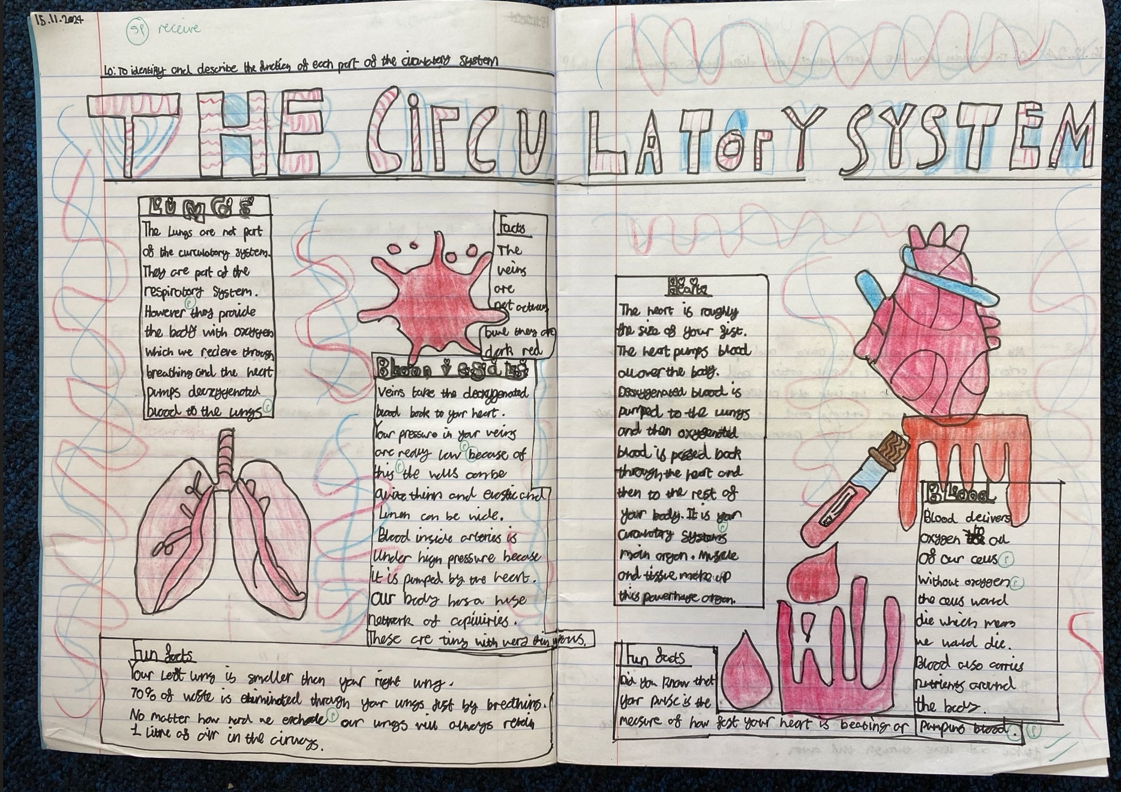 15.11.2024
sp receive
LO: To identify and describe the function of each part of the circulatory system
THE CIRCULATORY SYSTEM
LUNGS
The Lungs are not part
of the circulatory system.
They are part of the
respiratory system.
However they provide
the body with oxygen
which we recieve through
breathing and the heart
pumps deoxygenated
blood to the lungs
Facts
The
veins
are
not actually
blue they are
dark red
Blood Vessels
Veins take the deoxygenated
blood back to your heart.
Your pressure in your veins
are really low because of
this the walls can be
quite thinn and elastic and
Lumen can be wide.
Blood inside arteries is
under high pressure because
it is pumped by the heart.
Our body has a huge
network of capiliries.
These are tiny with very thin
Fun facts
Your left lung is smaller then your right lung.
70% of waste is eliminated through your lungs just by breathing.
No matter how hard we exhale our lungs will always retain
1 litre of air in the airways.
Heart
The heart is roughly
the size of your fist.
The heart pumps blood
all over the body.
Deoxygenated blood is
pumped to the lungs
and then oxygenated
blood is passed back
through the heart and
then to the rest of
your body. It is your
circulatory systems
main organ. Muscle
and tissue make up
this powerhouse organ.
Blood
Blood delivers
oxygen to all
of our cells
without oxygen
the cells would
die which means
we would die.
Blood also carries
nutrients around
the body.
Fun facts
Did you know that
your pulse is the
measure of how fast your heart is beating or pumping blood.